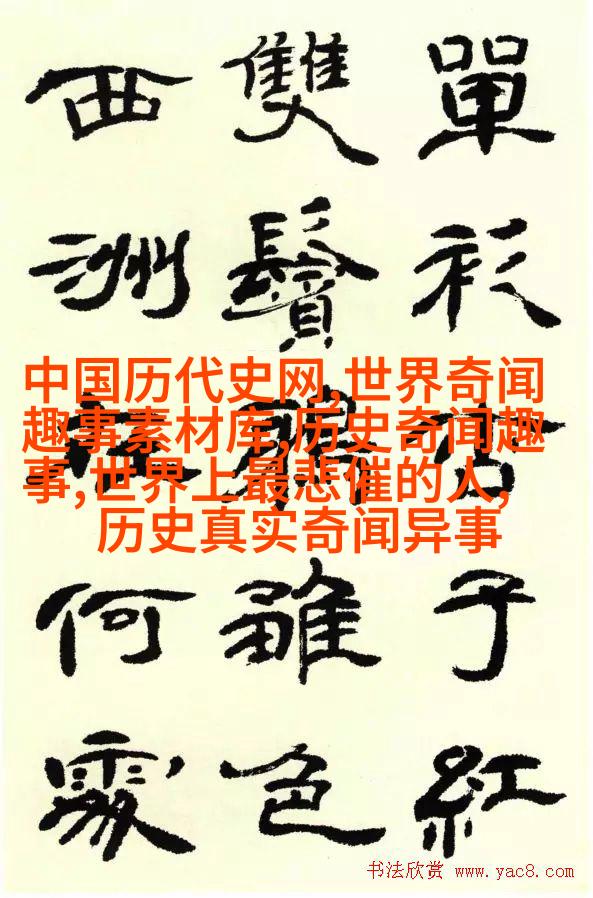 單衫杏子紅
雙鬢鴉雛色
西洲在何處
中国历代史网,世界奇闻
趣事素材库,历史奇闻趣
事,世界上最悲催的人,
历史真实奇闻异事
书法欣赏 www.yac8.com